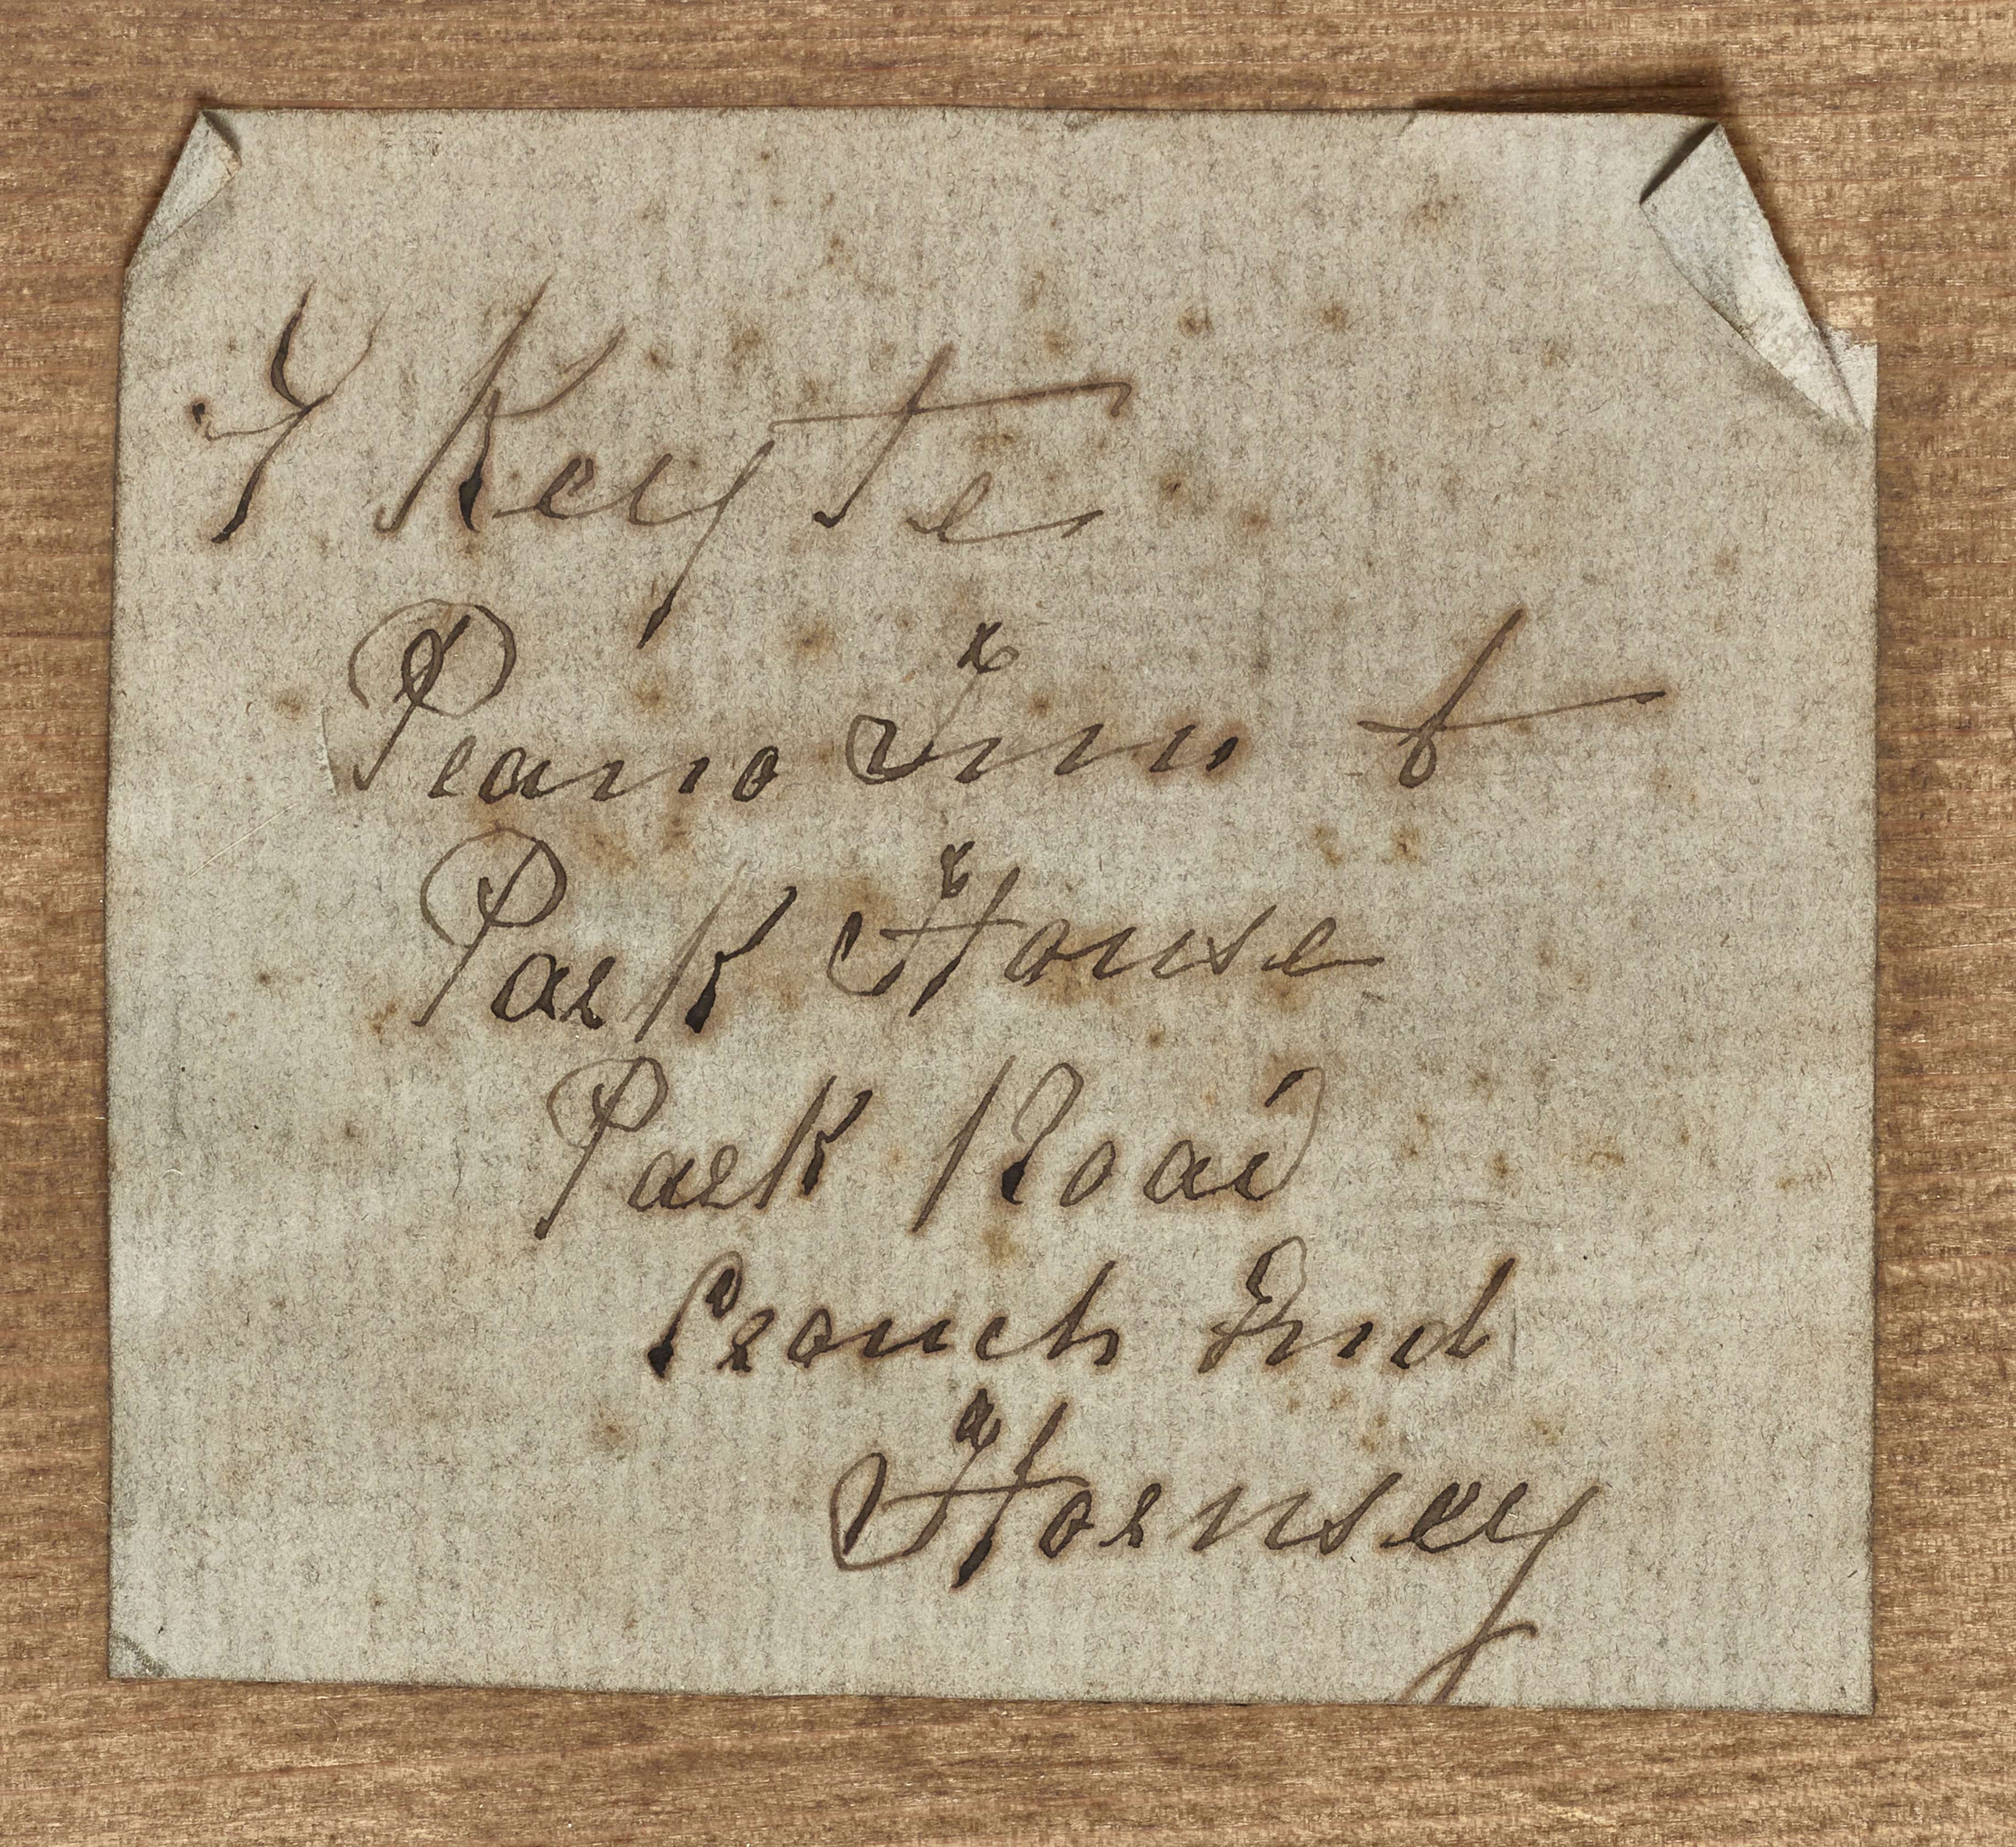 Y Keyte
Piano
Park House
Park Road
Crouch End
Hornsey